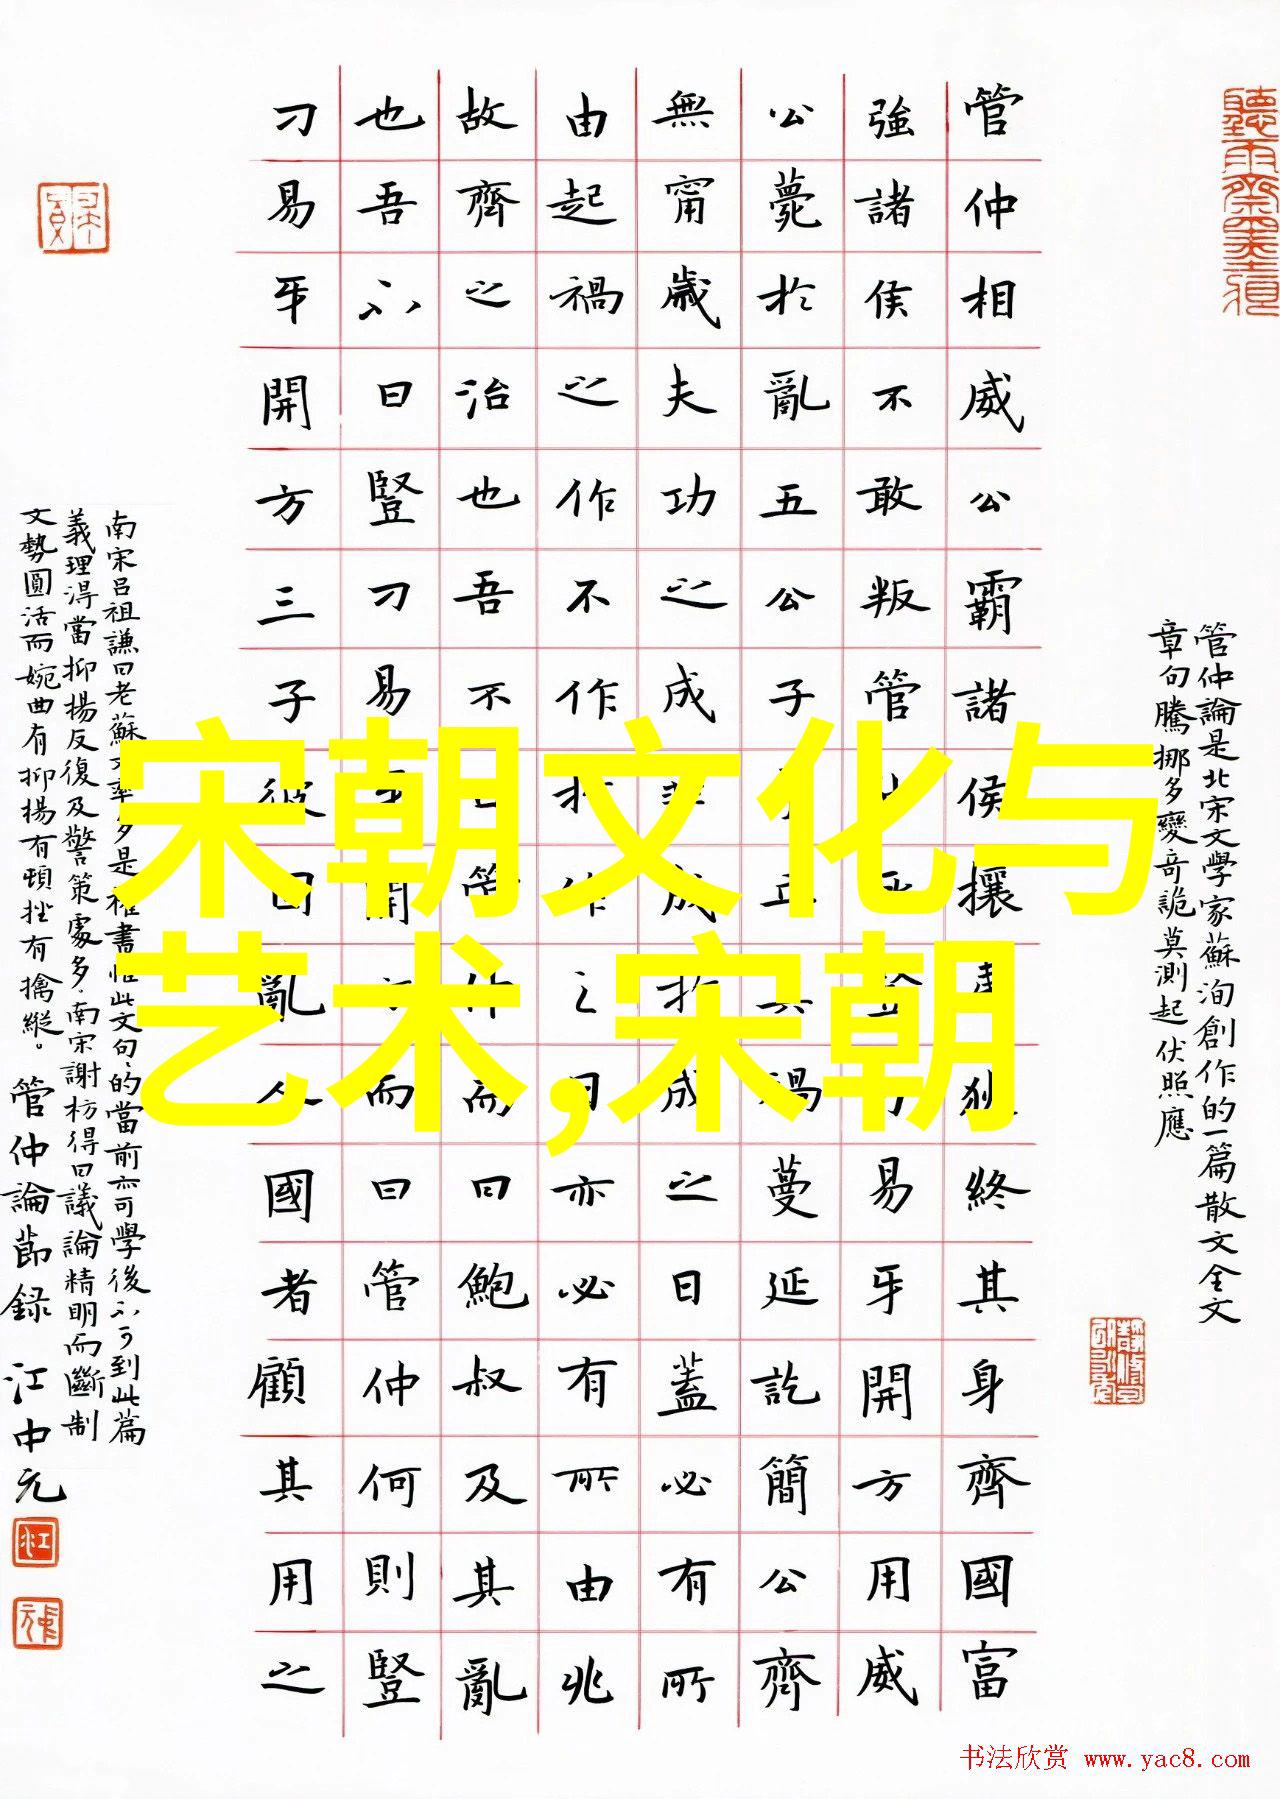 管仲論是北宋文學家蘇洵創作的一篇散文全文
章句騰挪多變奇詭莫測起伏照應
管仲相威公霸諸侯攘狄終其身齊國富
強諸侯不敢叛管易牙開方用威
公薨於亂五公子禍蔓延訖簡公齊
無甯歲夫功之成非成於成之日蓋必有所
由起禍之作不作於作之日亦必有所由兆
故齊之治也吾不曰管仲而曰鮑叔及其亂
也吾不曰豎刁易開而曰管仲何則豎
刁易牙開方三子彼固亂人國者顧其用之
南宋呂祖謙曰老蘇文率多是權書惟此文句句的當前亦可學後不可到此篇
義理淂當抑揚反復及警策處多南宋謝枋得曰議論精明而斷制
文勢圓活而婉曲有抑揚有頓挫有擒縱。管仲論節録 江中元
宋朝文化与
艺术,宋朝
书法欣赏 www.yac8.com